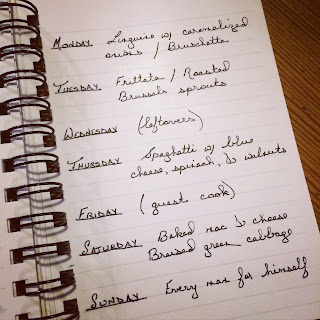 Monday Linguine w/ caramelized
onions / Bruschetta
Tuesday Frittata / Roasted
Brussels sprouts
Wednesday (leftovers)
Thursday Spaghetti w/ blue
cheese, spinach, & walnuts
Friday (guest cook)
Saturday Baked mac & cheese
Braised green cabbage
Sunday Every man for himself